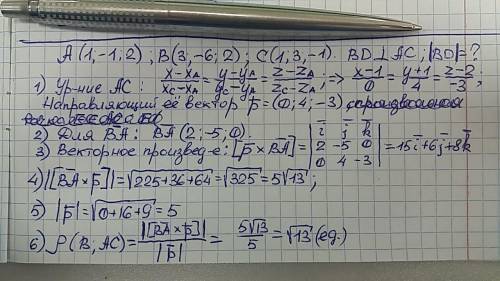 A(1,-1;2); B(3,-6;2); C(1;3,-1). BD⊥AC; |BD|=?
1) Ур-ние AC: (x-x_A)/(x_C-x_A) = (y-y_A)/(y_C-y_A) = (z-z_A)/(z_C-z_A); ⇒ (x-1)/0 = (y+1)/4 = (z-2)/-3;
Направляющий её вектор p̄=(0;4;-3)
2) Для BA: BA(2;-5;0).
3) Векторное произвед-е: [p̄×BA̅] = | i̅ j̅ k̅ |
| 2 -5 0 | = 15i̅+6j̅+8k̅
| 0 4 -3 |
4) |[BA̅×p̄]| = √225+36+64 = √325 = 5√13;
5) |p̄| = √0+16+9 = 5
6) ρ(B;AC) = |[BA̅×p̄]|/|p̄| = 5√13/5 = √13 (ед.)